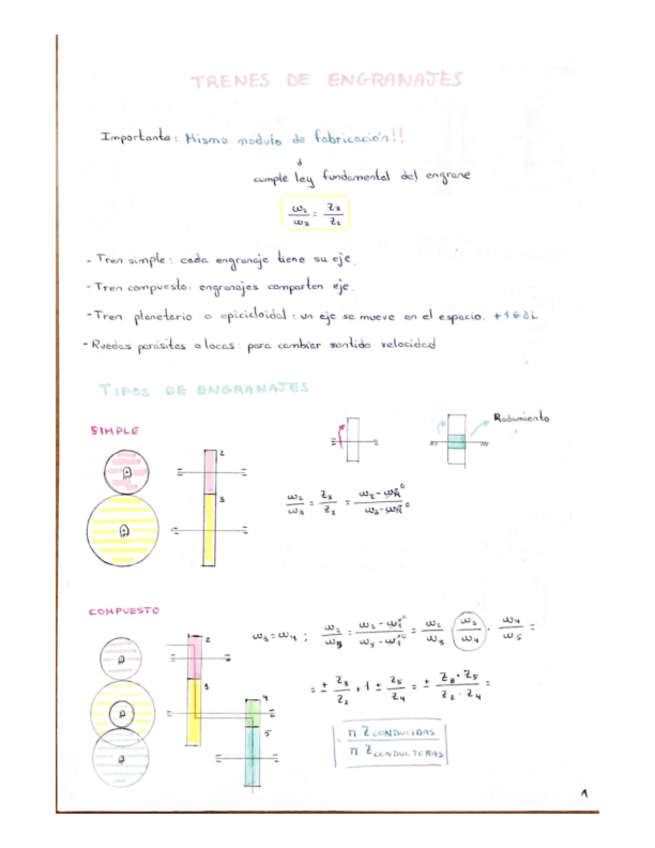 TRENES DE ENGRANAJES
Importante: Mismo modulo de fabricación!!
cumple ley fundamental del engrane
ω₂/ω₃ = Z₃/Z₂
- Tren simple: cada engranaje tiene su eje.
- Tren compuesto: engranajes comparten eje.
- Tren planetario o epicicloidal: un eje se mueve en el espacio. +1GDL
- Ruedas parásitas o locas: para cambiar sentido velocidad
TIPOS DE ENGRANAJES
Rodamiento
SIMPLE
2
3
ω₂/ω₃ = Z₃/Z₂ =
COMPUESTO
2
3
4
5
ω₃=ω₄ ;
= ω₂/ω₃ · ω₃/ω₄ · ω₄/ω₅ =
= ± Z₃·Z₅/Z₂·Z₄ =
Π Z CONDUCIDAS
Π Z CONDUCTORAS
1